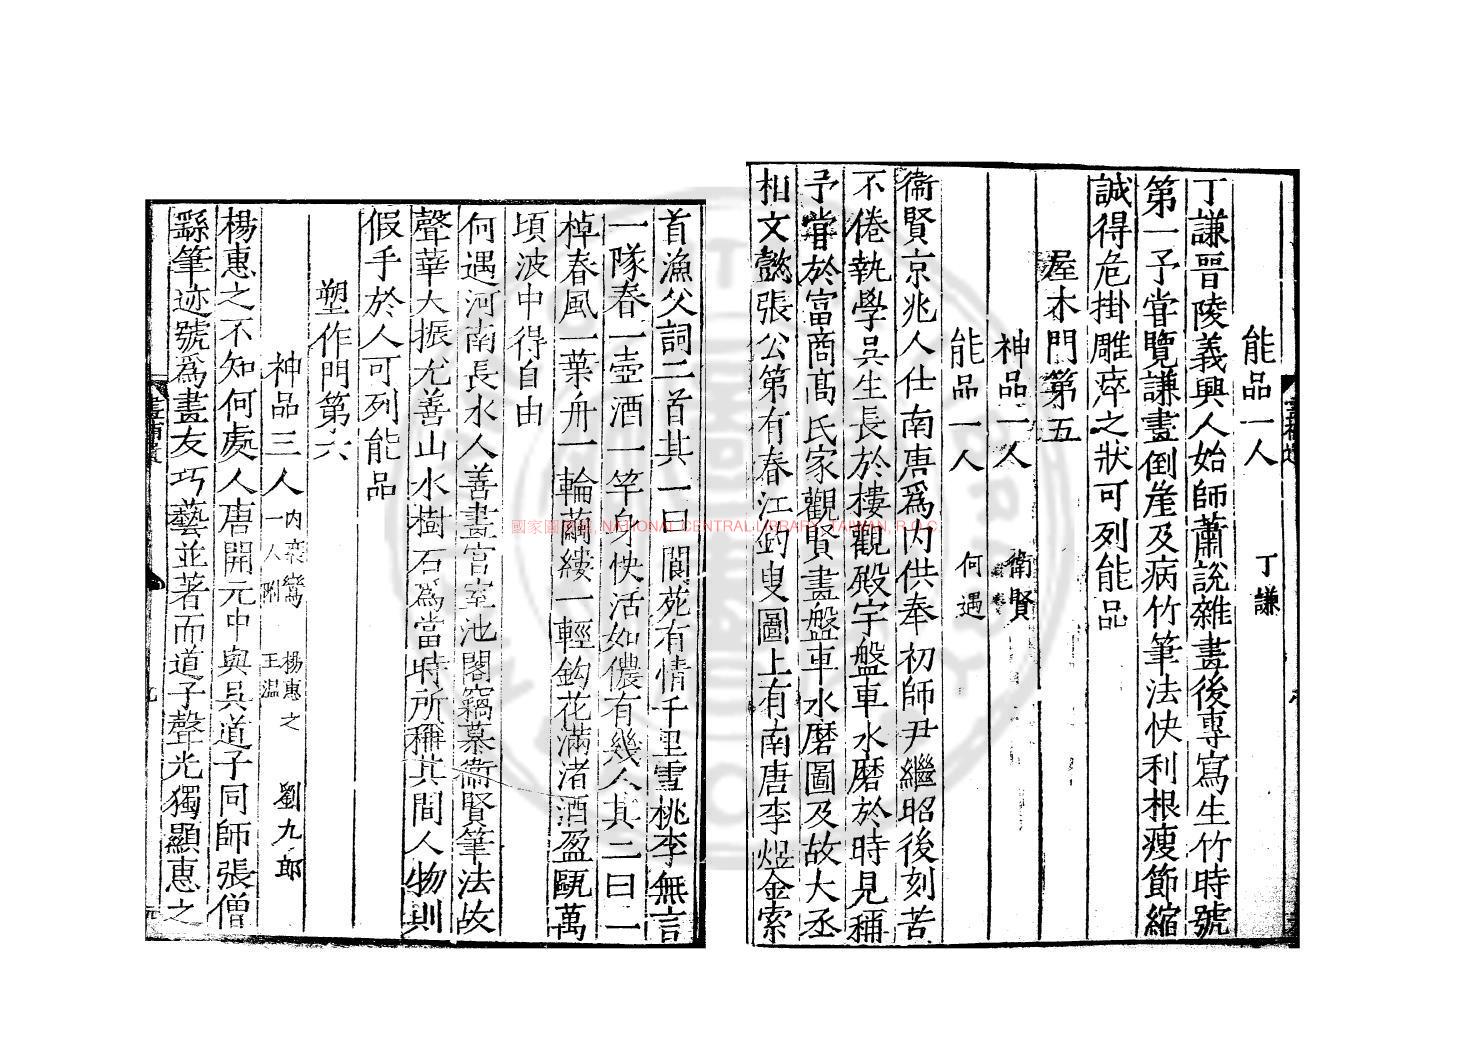 能品一人　丁謙
丁謙晉陵義興人始師蕭說雜畫後專寫生竹時號
第一予嘗覽謙畫倒崖及病竹筆法快利根瘦節縮
誠得危掛雕瘁之狀可列能品
屋木門第五
神品一人　衛賢
能品一人　何遇
衞賢京兆人仕南唐爲內供奉初師尹繼昭後刻苦
不倦執學吳生長於樓觀殿宇盤車水磨於時見稱
予嘗於富商高氏家觀賢畫盤車水磨圖及故大丞
相文懿張公第有春江釣叟圖上有南唐李煜金索
首漁父詞二首其一曰閬苑有情千里雪桃李無言
一隊春一壺酒一竿身快活如儂有幾人其二曰一
棹春風一葉舟一輪繭縷一輕鈎花滿渚酒盈甌萬
頃波中得自由
何遇河南長水人善畫宮室池閣竊慕衞賢筆法故
聲華大振尤善山水樹石爲當時所稱其間人物則
假手於人可列能品
塑作門第六
神品三人　內一人附　楊惠之　王溫　劉九郎
楊惠之不知何處人唐開元中與吳道子同師張僧
繇筆迹號爲畫友巧藝並著而道子聲光獨顯惠之
國家圖書館 NATIONAL CENTRAL LIBRARY, TAIWAN, R.O.C.